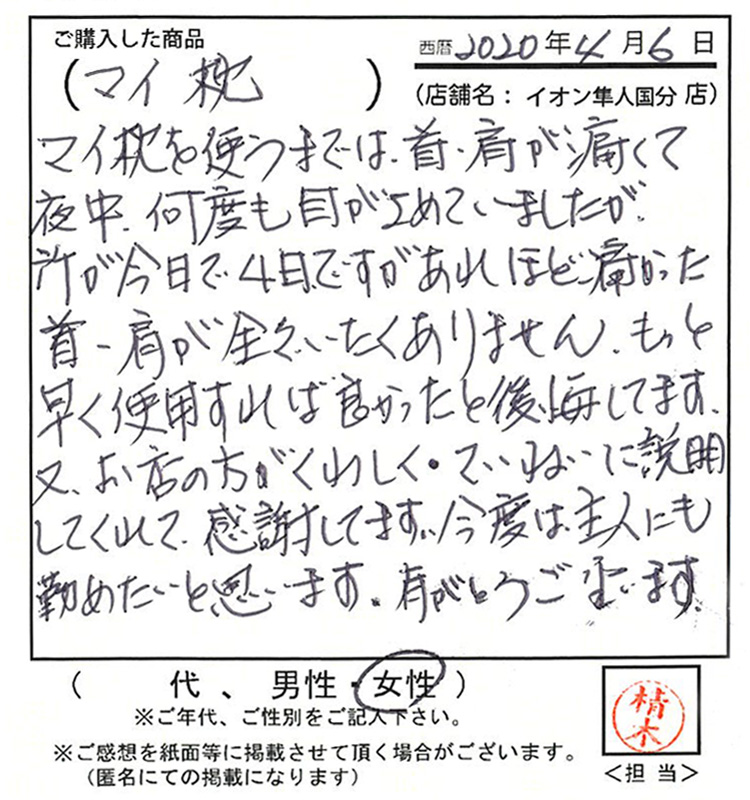 ご購入した商品
西暦 2020 年 4 月 6 日
(マイ枕)
(店舗名：イオン隼人国分 店)
マイ枕を使うまでは、首・肩が痛くて
夜中、何度も目がさめていましたが、
所が今日で4日ですがあれほど痛かった
首・肩が全々いたくありません。もっと
早く使用すれば良かったと後悔してます。
又、お店の方がくわしく・ていねいに説明
してくれて、感謝してます。今度は主人にも
勤めたいと思います。有がとうございます。
(　代、男性・女性)
※ご年代、ご性別をご記入下さい。
※ご感想を紙面等に掲載させて頂く場合がございます。
(匿名にての掲載になります)
＜担 当＞